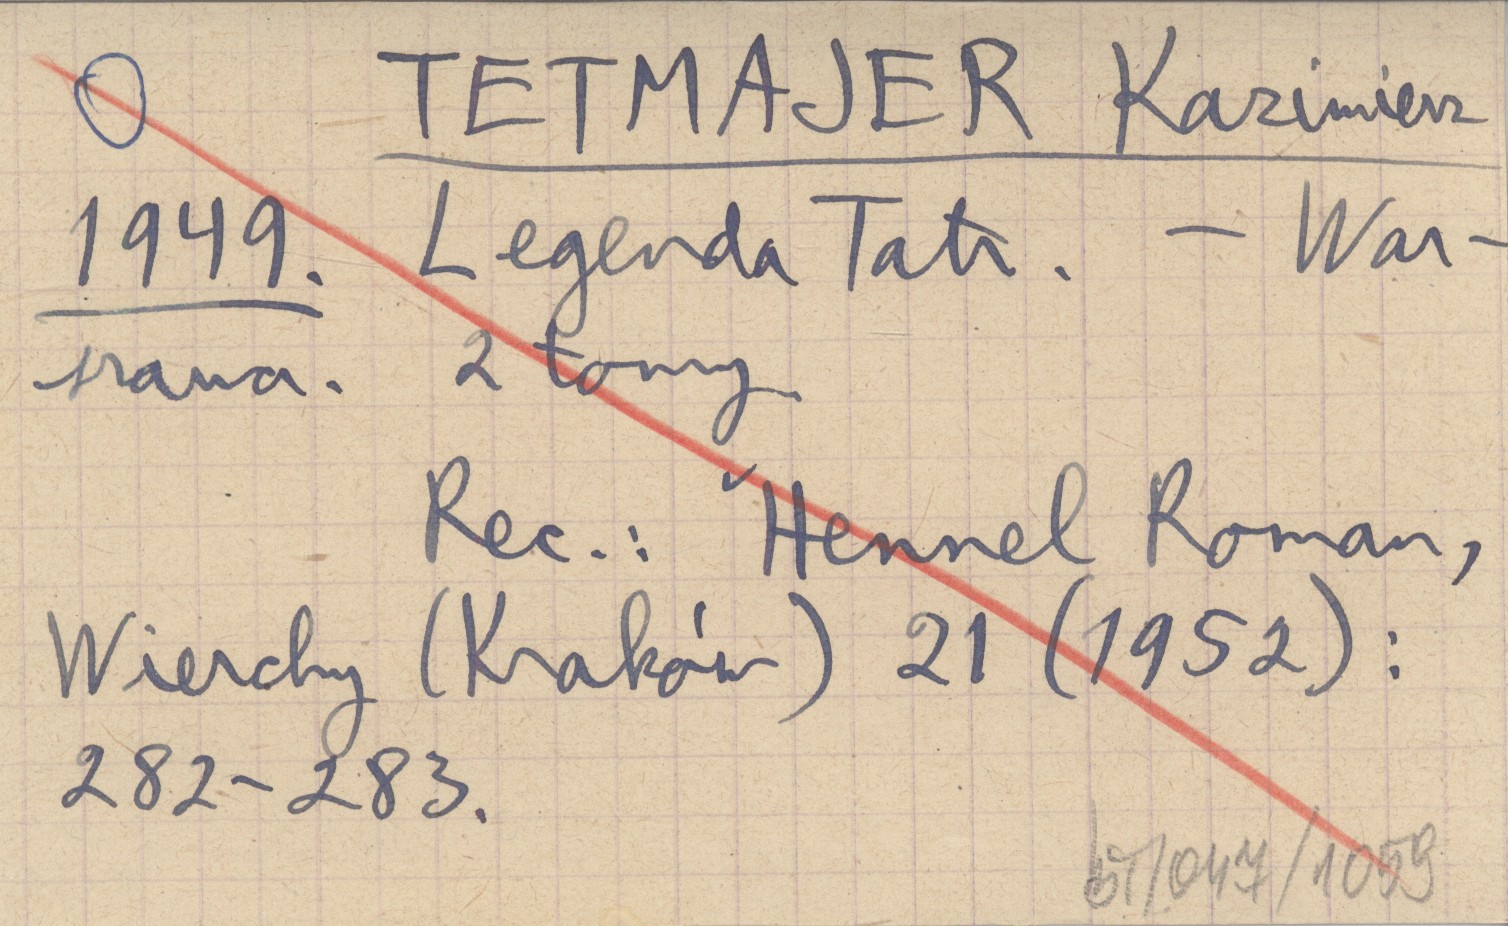 TETMAJER Kazimierz
1949. Legenda Tatr. – War-
szawa. 2 tomy
Rec.: Hennel Roman,
Wierchy (Kraków) 21 (1952):
282-283.
bT/047/1059